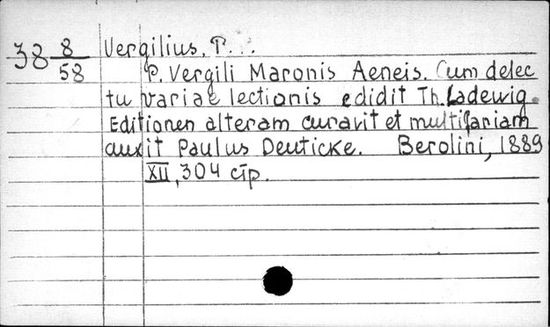 38 8/58 Vergilius, P. . .
P. Vergili Maronis Aeneis. Cum delec
tu variae lectionis edidit Th. Ladewig.
Editionen alteram curavit et multifariam
auxit Paulus Deuticke. Berolini, 1889
XII, 304 стр.